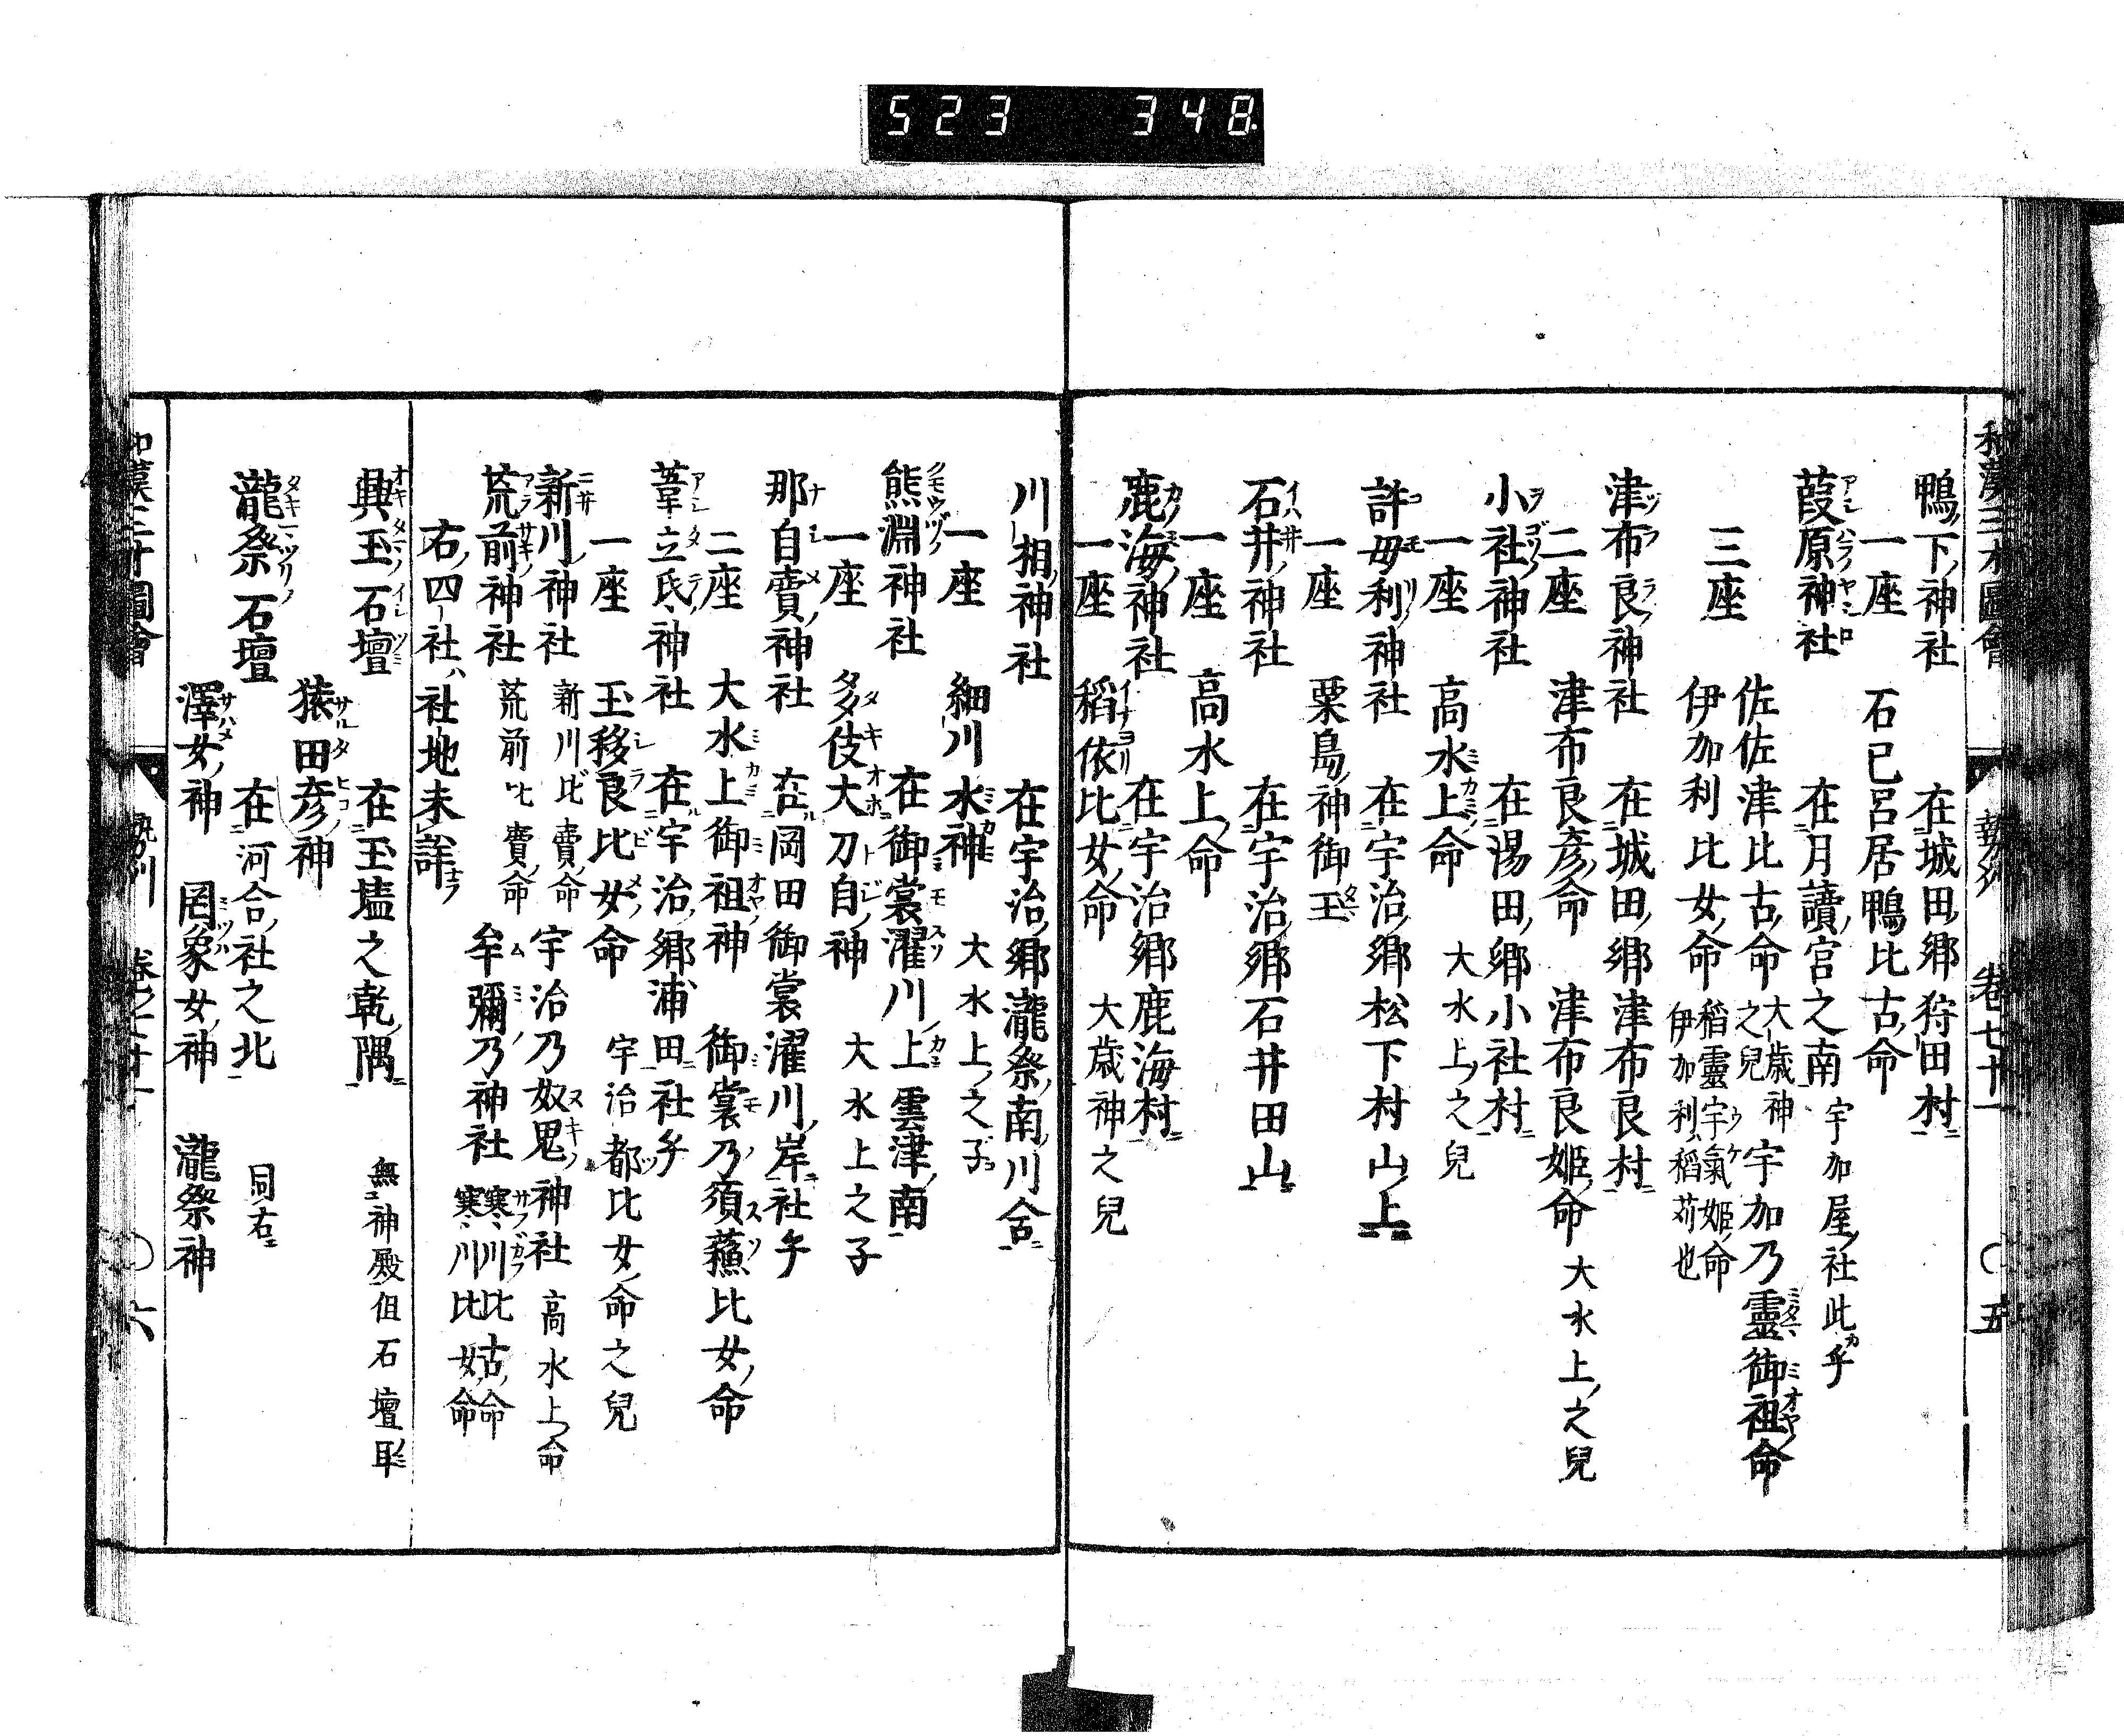 523 348
和漢三才圖會 勢州 卷七十一 〇 五
鴨下神社 在城田郷狩田村
一座 石已呂居鴨比古命
葭原神社 在月讀宮之南 宇加屋社此乎
三座 佐佐津比古命 大歳神之兒 宇加乃靈御祖命
伊加利比女命 稻靈宇氣姫命 伊加利稻苅也
津布良神社 在城田郷津布良村
二座 津布良彦命 津布良姫命 大水上之兒
小社神社 在湯田郷小社村
一座 高水上命 大水上之兒
許毋利神社 在宇治郷松下村山上
一座 粟島神御玉
石井神社 在宇治郷石井田山
一座 高水上命
鹿海神社 在宇治郷鹿海村
一座 稻依比女命 大歳神之兒
川相神社 在宇治郷瀧祭南川合
一座 細川水神 大水上之子
熊淵神社 在御裳濯川上雲津南
一座 多伎大刀自神 大水上之子
那自賣神社 在岡田御裳濯川岸社乎
二座 大水上御祖神 御裳乃須蘓比女命
葦立氏神社 在宇治郷浦田社乎
一座 玉移良比女命 宇治都比女命之兒
新川神社 新川比賣命 宇治乃奴鬼神社 高水上命
荒前神社 荒前比賣命 牟彌乃神社 寒川比古命 寒川比女命
右四社ハ社地未詳
興玉石壇 在玉壗之乾隅 無神殿但石壇耳
猿田彦神
瀧祭石壇 在河合社之北 同右
澤女神 罔象女神 瀧祭神
六